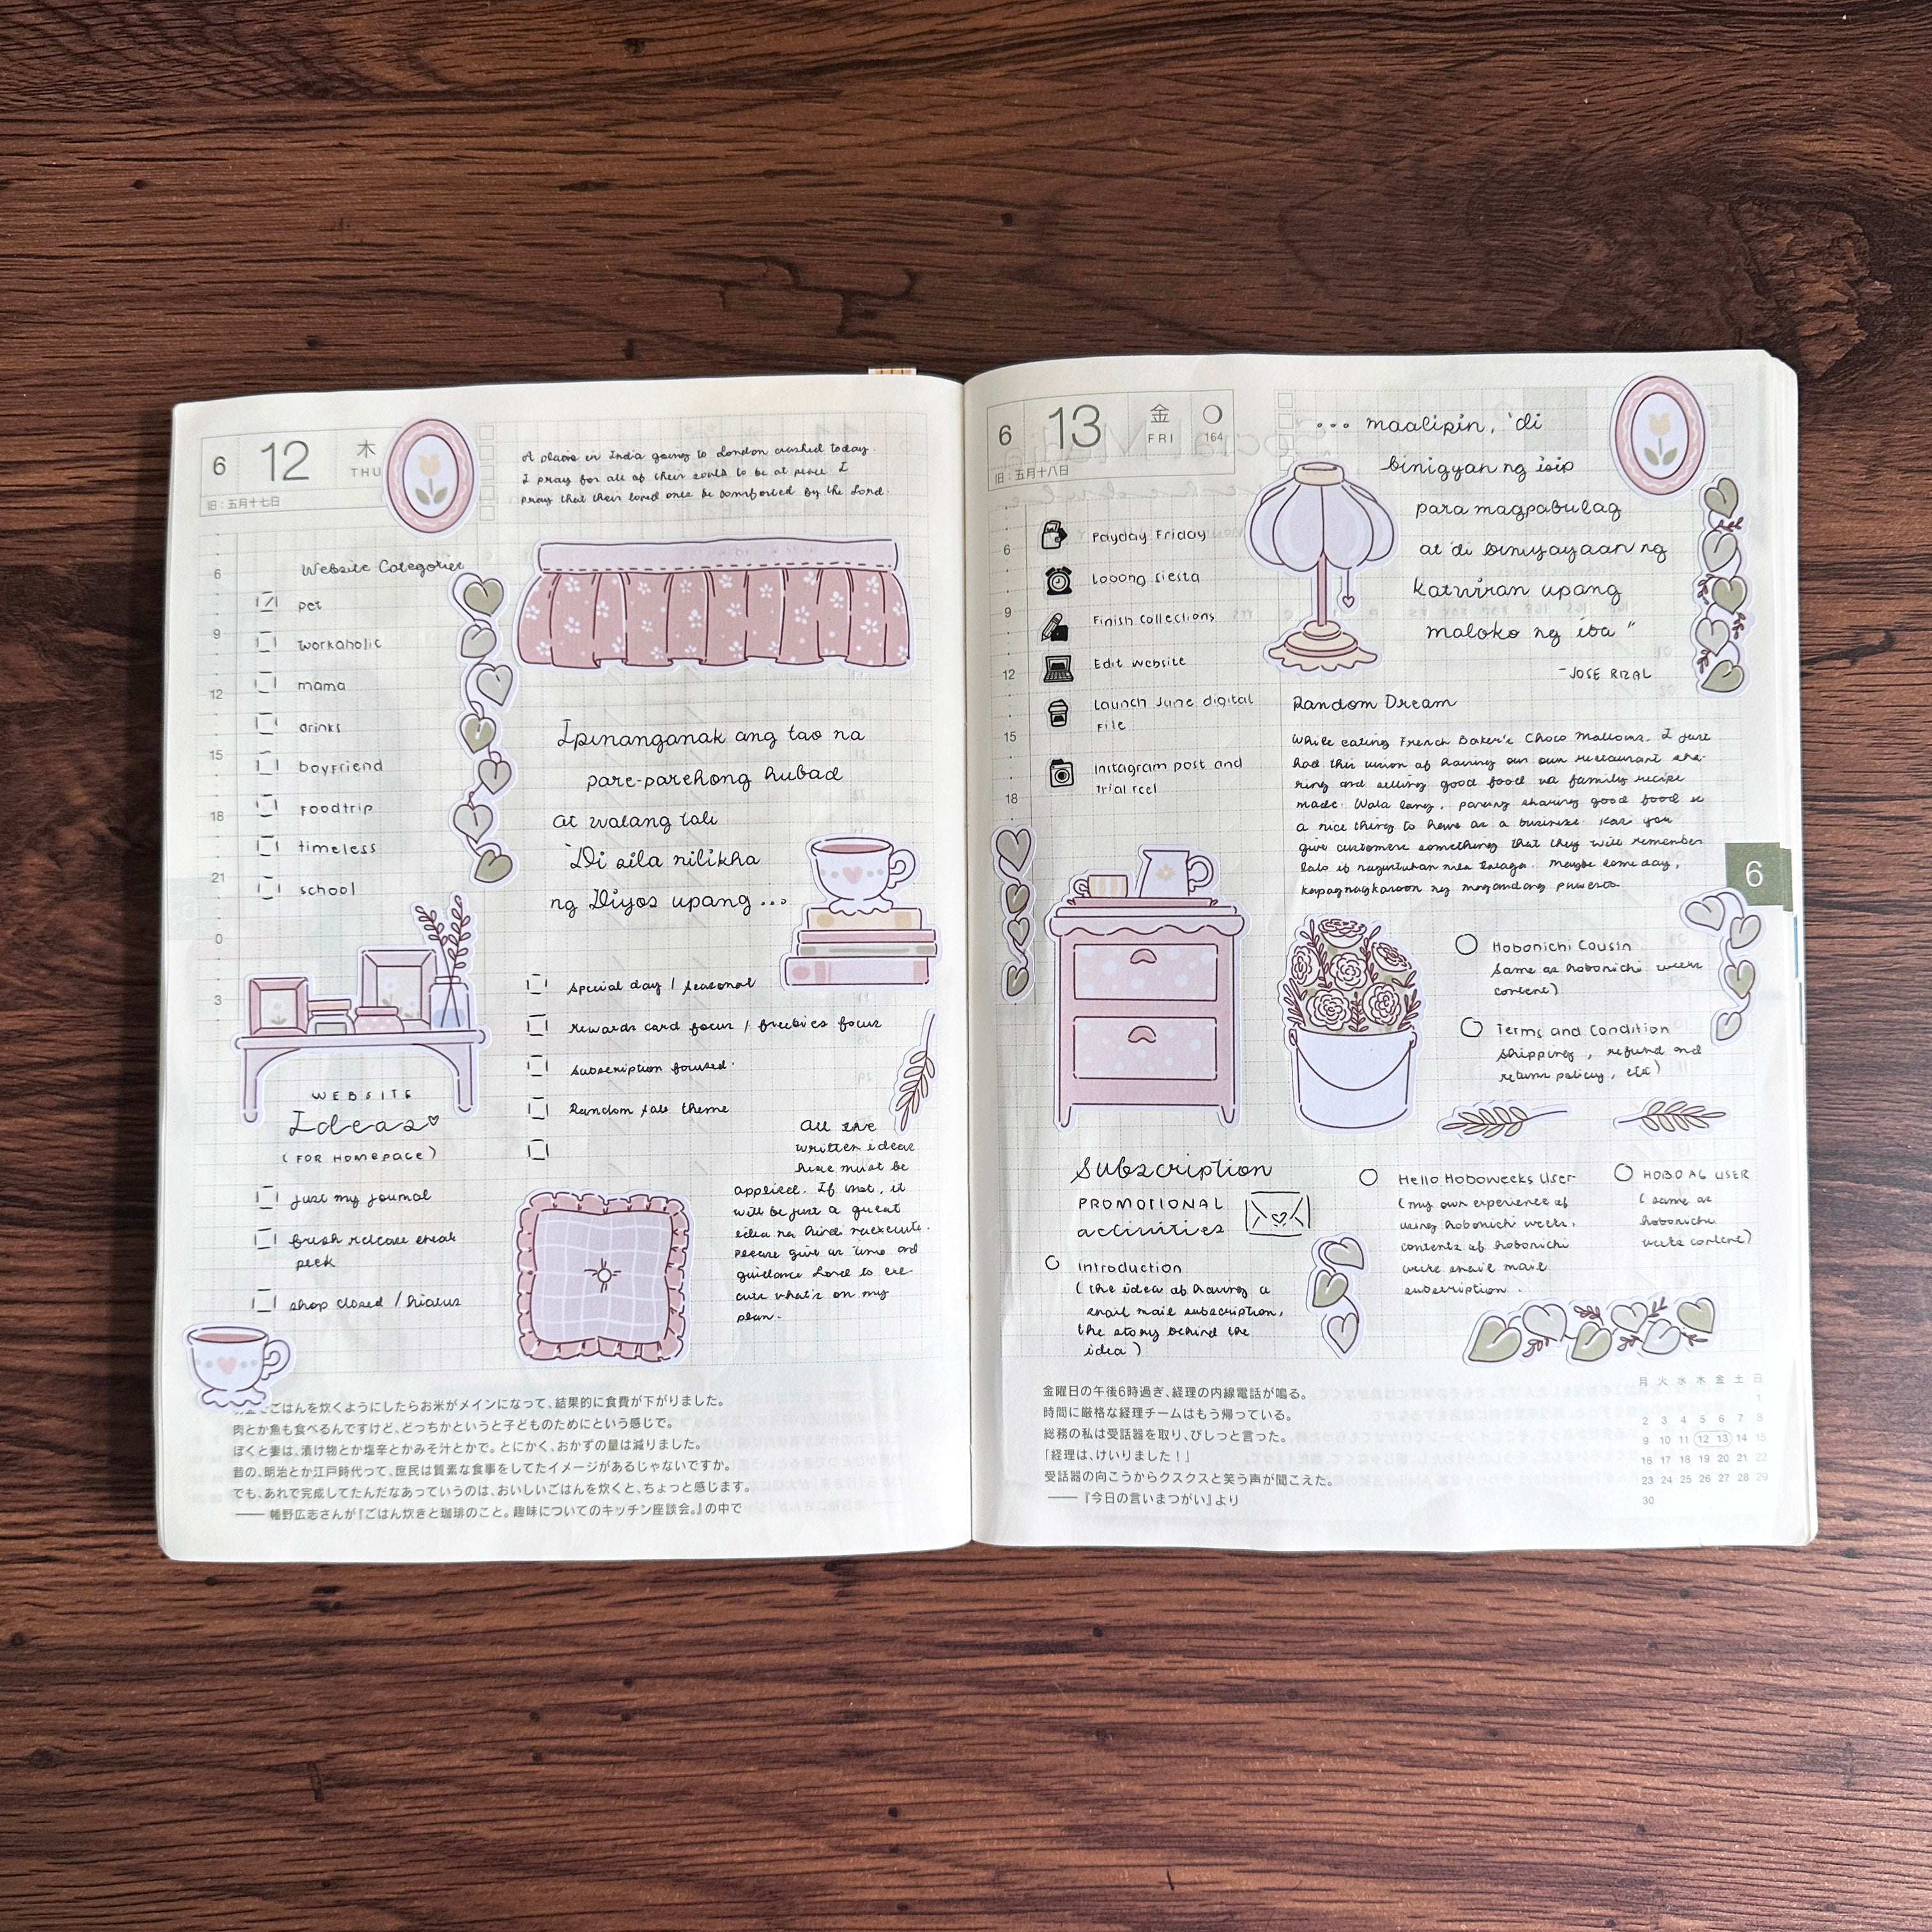 6 12 木
THU
旧:五月十七日
A plane in India going to London crashed today.
I pray for all of their souls to be at peace. I
pray that their loved ones be comforted by the Lord.
6
9
12
15
18
21
0
3
Website Categories
pet
workaholic
mama
drinks
boyfriend
foodtrip
timeless
school
Ipinanganak ang tao na
pare-parehong hubad
at walang tali
'Di sila nilikha
ng Diyos upang ...
special day / seasonal
rewards card focus / freebies focus
subscription focused.
Random sale theme
WEBSITE
Ideas
(FOR HOMEPAGE)
just my journal
fresh release sneak
peek
shop closed / hiatus
All the
written ideas
here must be
applied. If not, it
will be just a great
idea na hindi naexecute.
Please give us time and
guidance Lord to exe-
cute what's on my
plan.
ごはんを炊くようにしたらお米がメインになって、結果的に食費が下がりました。
肉とか魚も食べるんですけど、どっちかというと子どものためにという感じで。
ぼくと妻は、漬け物とか塩辛とかみそ汁とかで。とにかく、おかずの量は減りました。
昔の、明治とか江戸時代って、庶民は質素な食事をしてたイメージがあるじゃないですか。
でも、あれで完成してたんだなあっていうのは、おいしいごはんを炊くと、ちょっと感じます。
—— 幡野広志さんが『ごはん炊きと珈琲のこと。趣味についてのキッチン座談会。』の中で
6 13 金
FRI 164
旧:五月十八日
6
9
12
15
18
Payday Friday
Looong siesta
Finish collections
Edit website
Launch June digital
file
Instagram post and
trial reel
... maalipin, 'di
binigyan ng isip
para magpabulag
at 'di biniyayaan ng
katwiran upang
maloko ng iba "
-JOSE RIZAL
Random Dream
While eating French Baker's Choco Mallows. I just
had this vision of having our own restaurant sha-
ring and selling good food na family recipe
made. Wala lang, parang sharing good food is
a nice thing to have as a business. Kas you
give customers something that they will remember
lalo if nagustuhan nila talaga. Maybe someday,
kapag nagkaroon ng magandang puwesto.
6
Hobonichi Cousin
same as hobonichi weeks
content)
Terms and Condition
shipping, refund and
return policy, etc)
Subscription
PROMOTIONAL
activities
Introduction
(the idea of having a
snail mail subscription,
the story behind the
idea)
Hello Hoboweeks User
(my own experience of
using hobonichi weeks.
contents of hobonichi
weeks snail mail
subscription.
HOBO A6 USER
(same as
hobonichi
weeks content)
金曜日の午後6時過ぎ、経理の内線電話が鳴る。
時間に厳格な経理チームはもう帰っている。
総務の私は受話器を取り、びしっと言った。
「経理は、けいりました!」
受話器の向こうからクスクスと笑う声が聞こえた。
——『今日の言いまつがい』より
月 火 水 木 金 土 日
1
2 3 4 5 6 7 8
9 10 11 12 13 14 15
16 17 18 19 20 21 22
23 24 25 26 27 28 29
30